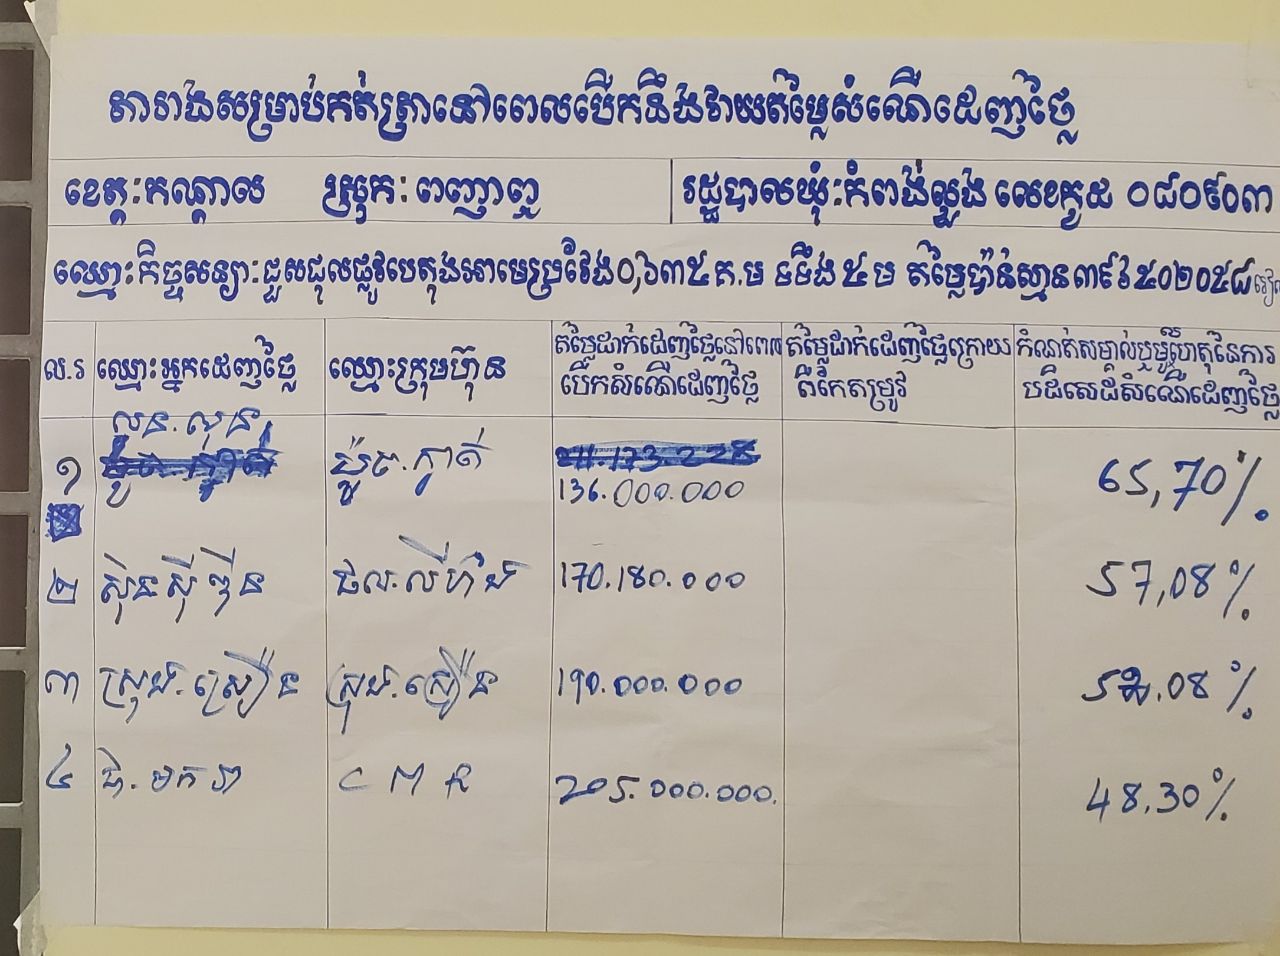 តារាងសម្រាប់កត់ត្រានៅពេលបើកនឹងវាយតម្លៃសំណើដេញថ្លៃ
ខេត្ត:កណ្តាល ស្រុក:ពញាឮ រដ្ឋបាលឃុំ:កំពង់លួង លេខកូដ ០៨០៩០៣
ឈ្មោះកិច្ចសន្យា:ជួសជុលផ្លូវបេតុងអាមេប្រវែង០,៦៣៥គ.ម ទទឹង៥ម តម្លៃប៉ាន់ស្មាន៣៩៦៥០២០៥៨រៀល
ល.រ ឈ្មោះអ្នកដេញថ្លៃ ឈ្មោះក្រុមហ៊ុន តម្លៃដាក់ដេញថ្លៃនៅពេលបើកសំណើដេញថ្លៃ តម្លៃដាក់ដេញថ្លៃក្រោយពីកែតម្រូវ កំណត់សម្គាល់ឬមូលហេតុនៃការបដិសេដសំណើដេញថ្លៃ
១ លួន.លុន ប៊ូច.ក្វាត់ 136.000.000 65,70%
២ ស៊ិនស៊ីឌ៊ីន ផល.លីហ៊ង់ 170.180.000 57,08%
៣ ស្រុង.ស្រឿន ស្រុង.ស្រឿន 190.000.000 .08%
៤ ធី.មករា CMR 205.000.000. 48.30%